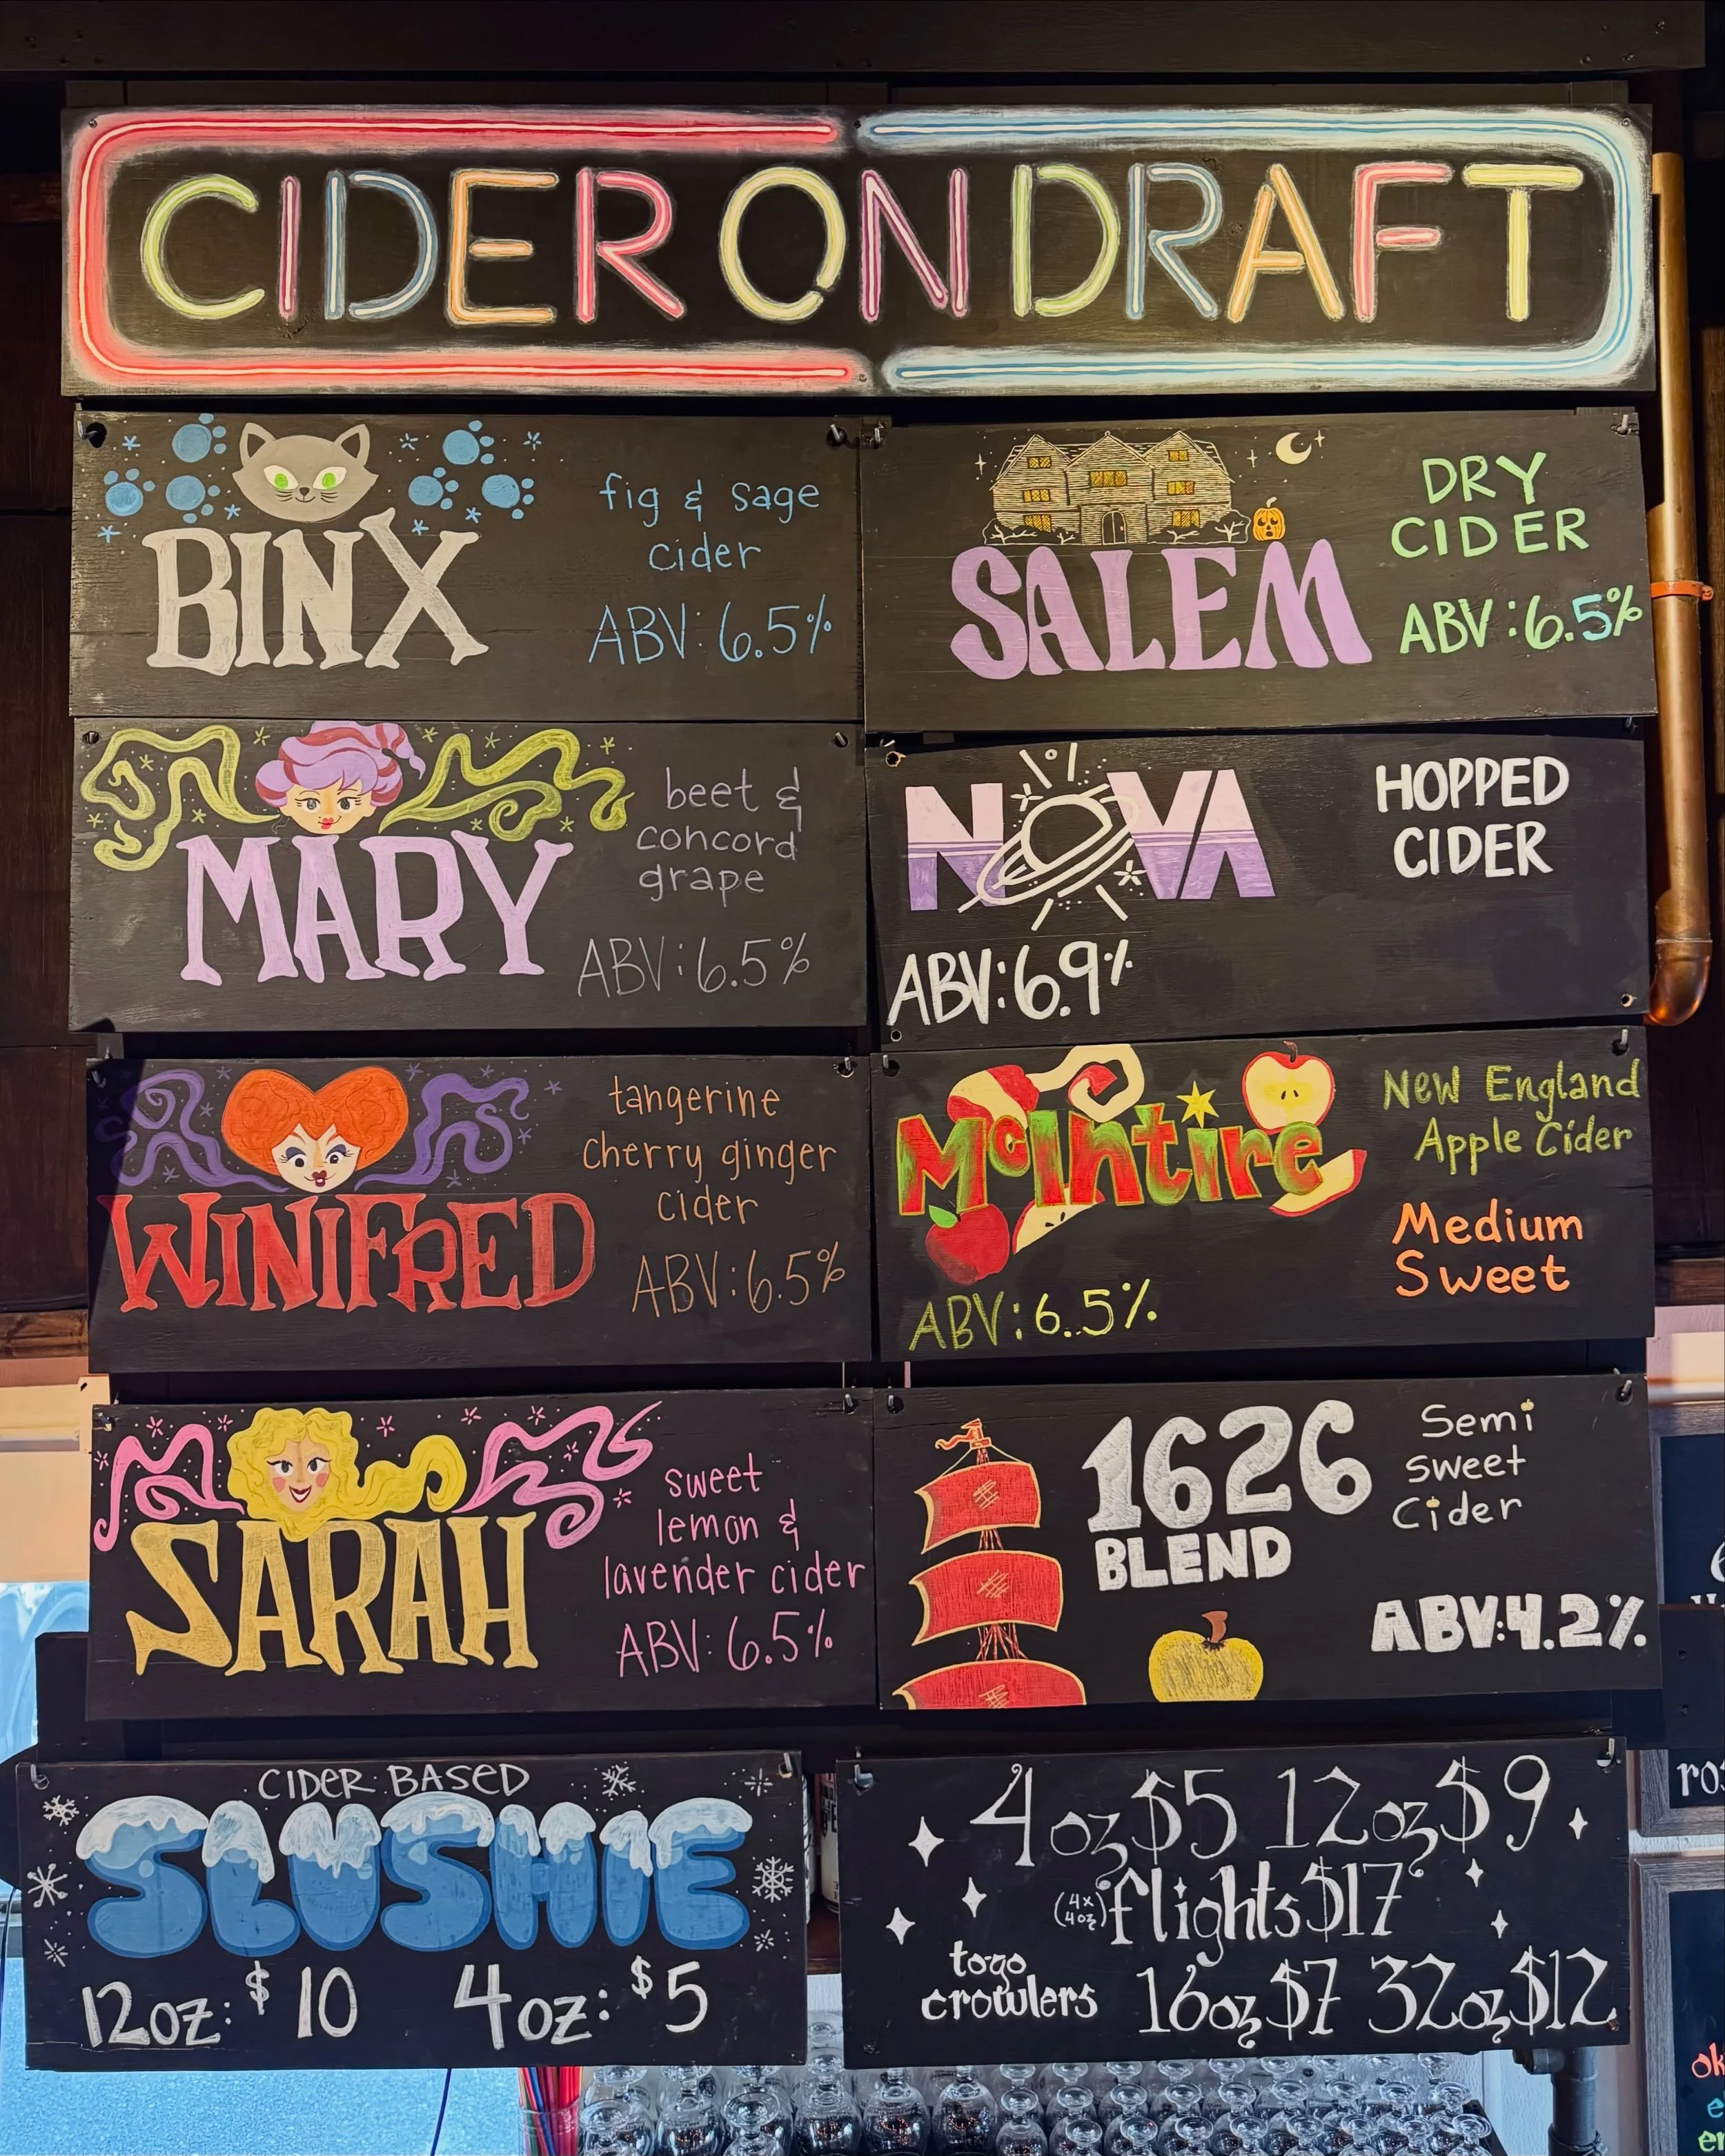 CIDER ON DRAFT
BINX
fig & sage
cider
ABV: 6.5%
SALEM
DRY
CIDER
ABV: 6.5%
MARY
beet &
concord
grape
ABV: 6.5%
NOVA
HOPPED
CIDER
ABV: 6.9%
WINIFRED
tangerine
cherry ginger
cider
ABV: 6.5%
McIntire
New England
Apple Cider
Medium
Sweet
ABV: 6.5%
SARAH
sweet
lemon &
lavender cider
ABV: 6.5%
1626
BLEND
Semi
sweet
Cider
ABV: 4.2%
CIDER BASED
SLUSHIE
12oz: $10 4oz: $5
4oz $5 12oz $9
(4x 4oz) flights $17
togo
crowlers 16oz $7 32oz $12